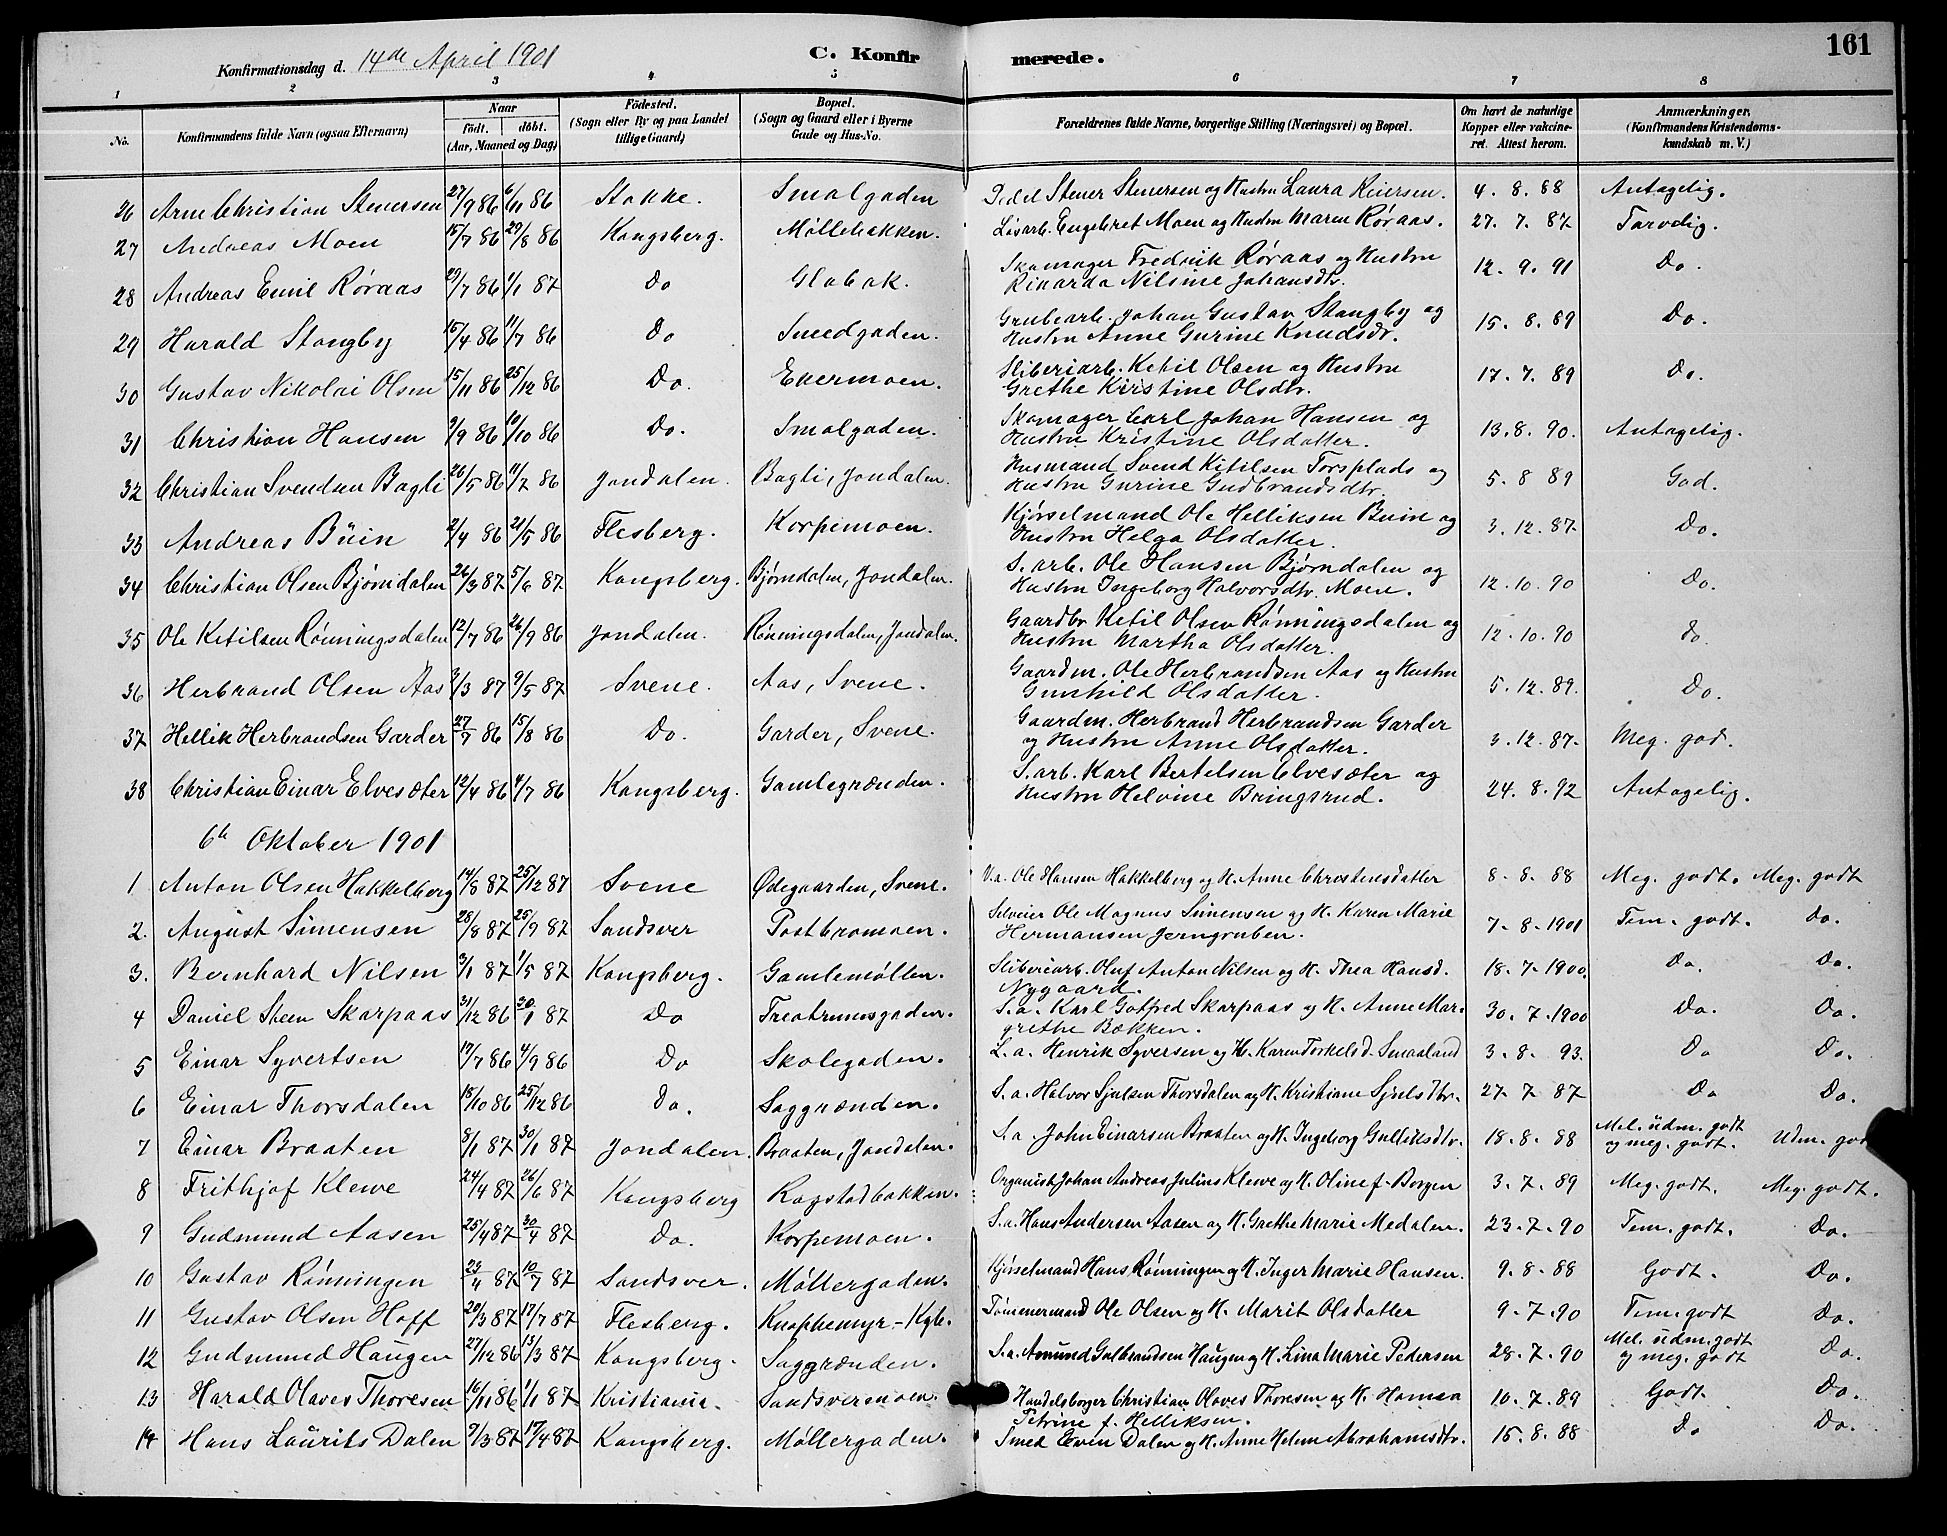 161
Konfirmationsdag d. 14de April 1901 C. Konfirmerede.
1 2 3 4 5 6 7 8
No. Konfirmandens fulde Navn (ogsaa Efternavn) Naar født. døbt. (Aar, Maaned og Dag) Fødested. (Sogn eller By og paa Landet tillige Gaard) Bopæl. (Sogn og Gaard eller i Byerne Gade og Hus-No. Forældrenes fulde Navne, borgerlige Stilling (Næringsvei) og Bopæl. Om havt de naturlige Kopper eller vakcineret. Attest herom. Anmærkninger, (Konfirmandens Kristendomskundskab m. V.)
26 Arne Christian Stenersen 27/9 86 6/11 86 Stokke. Smalgaden Stener Stenersen og Hustru Laura Reiersen. 4. 8. 88 Antagelig.
27 Andreas Moen 15/7 86 29/8 86 Kongsberg. Møllebakken. Løsarb. Engebret Moen og Hustru Maren Røraas. 27. 7. 87 Tarvelig.
28 Andreas Emil Røraas 29/7 86 1/1 87 Do Glabak. Skomager Fredrik Røraas og Hustru
Rikarda Nilsine Johansdtr. 12. 9. 91 Do.
29 Harald Stangby 15/4 86 11/7 86 Do Smedgaden. Grubearb. Johan Gustav Stangby og
Hustru Anne Gurine Knudsdr. 15. 8. 89 Do.
30 Gustav Nikolai Olsen 15/11 86 25/12 86 Do. Ekermoen. Sliberiarb. Ketil Olsen og Hustru
Grethe Kirstine Olsdtr. 17. 7. 89 Do.
31 Christian Hansen 9/9 86 10/10 86 Do. Smalgaden. Skomager Carl Johan Hansen og
Hustru Kristine Olsdatter. 13. 8. 90. Antagelig.
32 Christian Svendsen Bagli 26/5 86 11/7 86 Jondalen. Bagli, Jondalen. Husmand Svend Kittilsen Torsplads og
Hustru Gurine Gudbrandsdtr. 5. 8 89 God.
33 Andreas Büin 2/4 86 21/5 86 Flesberg. Korpemoen. Kjørselmand Ole Helliksen Buin og
Hustru Helga Olsdatter. 3. 12. 87. Do.
34 Christian Olsen Bjørndalen 26/3 87 5/6 87 Kongsberg. Bjørndalen, Jondalen. S. arb. Ole Hansen Bjørndalen og
Hustru Ingeborg Halvorsdtr. Moen. 12. 10. 90 Do.
35 Ole Ketilsen Rønningsdalen 12/7 86 26/9 86 Jondalen. Rønningsdalen, Jondalen. Gaardbr Ketil Olsen Rønningsdalen og
Hustru Martha Olsdatter. 12. 10. 90 do.
36 Herbrand Olsen Aas 3/3 87 9/5 87 Svene. Aas, Svene. Gaardm. Ole Herbrandsen Aas og Hustru
Gunhild Olsdatter. 5. 12. 89. Do.
37 Hellik Herbrandsen Garder 27/7 86 15/8 86 Do. Garder, Svene. Gaardm. Herbrand Herbrandsen Garder
og Hustru Anne Olsdatter. 3. 12. 87. Meg. god.
38 Christian Einar Elvesæter 12/4 86 4/7 86 Kongsberg. Gamlegrænden. S. arb. Karl Bertelsen Elvesæter og
Hustru Helvine Bringsrud. 24. 8. 92 Antagelig.
6te Oktober 1901
1. Anton Olsen Hakkelberg 14/8 87 25/12 87 Svene Ødegaarden, Svene. V.a. Ole Hansen Hakkelberg og H. Anne Christensdatter 8. 8. 88 Meg. godt. Meg. godt
2. August Simensen 28/8 87 25/9 87 Sandsver Postbromoen. Ole Magnus Simensen og H. Karen Marie
Hermansen Jerngruben. 7. 8. 1901 Tem. godt. Do.
3. Bernhard Nilsen 3/1 87 1/5 87 Kongsberg. Gamlemøllen. Sliberiarb. Oluf Anton Nilsen og H. Thea Hansd.
Nygaard. 18. 7. 1900. Do. Do.
4 Daniel Steen Skarpaas 31/12 86 30/1 87 Do Treatrumsgaden. S.a. Karl Gotfred Skarpaas og H. Anne Margrethe
Bakken. 30. 7. 1900 Do. Do.
5 Einar Syvertsen 17/7 86 4/9 86 Do Skolegaden. L.a. Henrik Syversen og H. Karen Torkelsd. Smaaland 3. 8. 93. Do Do.
6 Einar Thorsdalen 18/10 86 25/12 86 Do. Saggrænden. S.a. Halvor Sjulsen Thorsdalen og H. Kristiane Sjulsdtr. 27. 7. 87 Do Do.
7 Einar Braaten 8/1 87 30/1 87 Jondalen. Braaten, Jondalen. S.a. John Einarsen Braaten og H. Ingeborg Gulliksdtr. 18. 8. 88 Mel. udm. godt og meg. godt. Udm. godt
8 Frithjof Klewe 24/4 87 26/6 87 Kongsberg Ragstadbakken. Organist Johan Andreas Julius Klewe og H. Oline f. Borgen 3. 7. 89 Meg. godt. Meg. godt.
9 Gudmund Aasen 25/4 87 30/4 87 Do. Korpemoen. S.a. Hans Andersen Aasen og H. Grethe Marie Medalen. 23. 7. 90 Tem. godt. Do.
10 Gustav Rønningen 23/4 87 10/7 87 Sandsver. Møllergaden. Kjørselmand Hans Rønningen og H. Inger Marie Hansen. 9. 8. 88 Godt. Do.
11 Gustav Olsen Hoff 20/3 87 17/7 87 Flesberg. Knophemyr - Kgb. Tømmermand Ole Olsen og H. Marit Olsdatter 9. 7. 90 Tem. godt Do.
12 Gudmund Haugen 27/12 86 13/3 87 Kongsberg. Saggrænden. S.a. Amund Gulbrandsen Haugen og H. Lina Marie Pedersen 28. 7. 90 Mel. udm. godt og meg. godt Do.
13 Harald Olaves Thoresen 16/11 86 1/1 87 Kristiania. Sandsvermoen. Handelsborger Christian Olaves Thoresen og H. Hanna
Petrine f. Helliksen. 10. 7. 89 Godt. Do.
14 Hans Laurits Dalen 9/3 87 17/4 87 Kongsberg. Møllergaden. Smed Even Dalen og H. Anne Helene Abrahamsdtr. 15. 8. 88 Do Do.